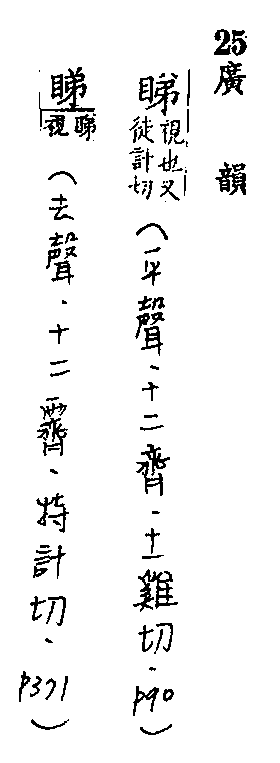 25廣韻
睇
視也又
徒計切
(平聲.十二齊.土雞切.P90)
睇
睇
視
(去聲.十二霽.特計切.P371)